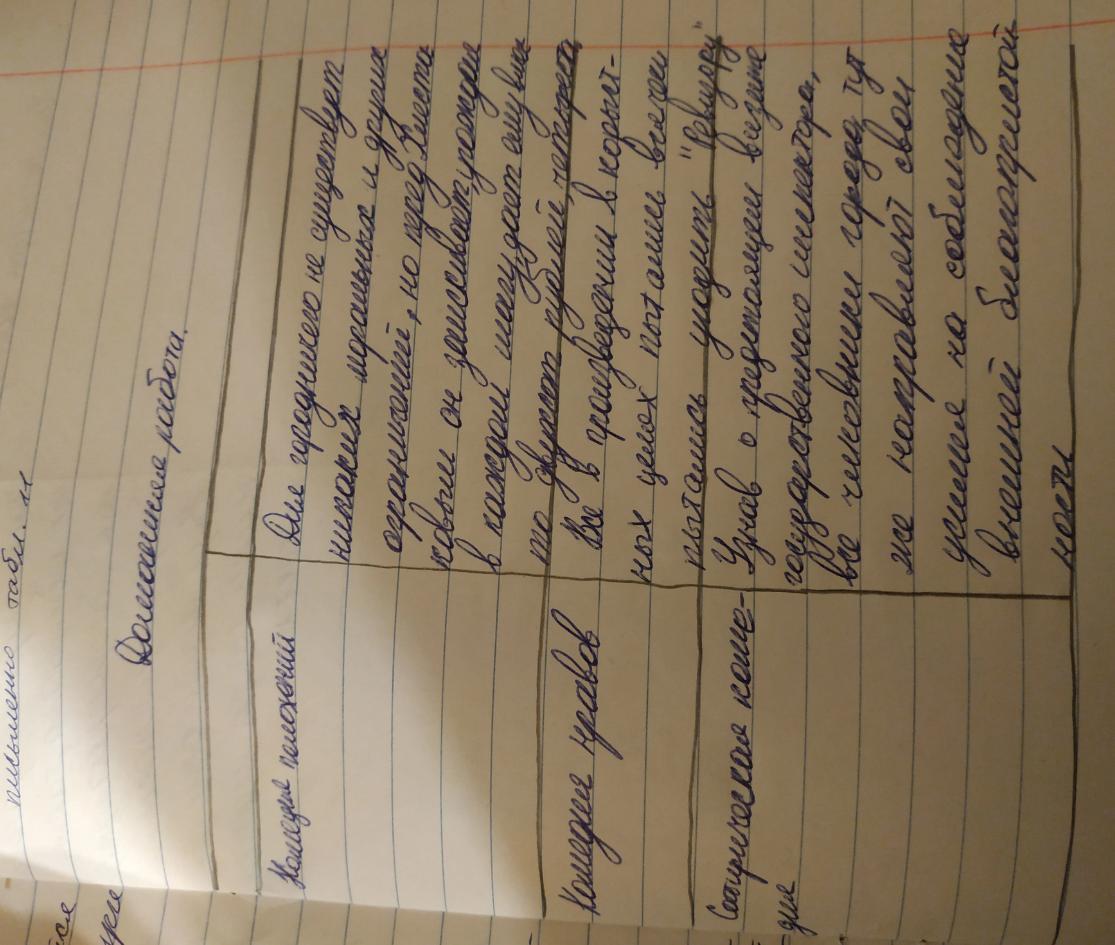 письменно табл. 11
Домашняя работа.
Комедия положений
Для городничего не существует
никаких моральных и других
ограничений, но перед Хлеста
ковым он заискивает, рождая
в каждом шагу
то двухсот рублей, четырёхсот
Комедия нравов
Все в произведении в корыст-
ных целях пытались всячески
пытались угодить "ревизору"
Сатирическая коме-
дия
Узнав о предстоящем визите
государственного инспектора,
все чиновники города тут
же направляют свои
усилия на соблюдение
внешней благопристой
ности